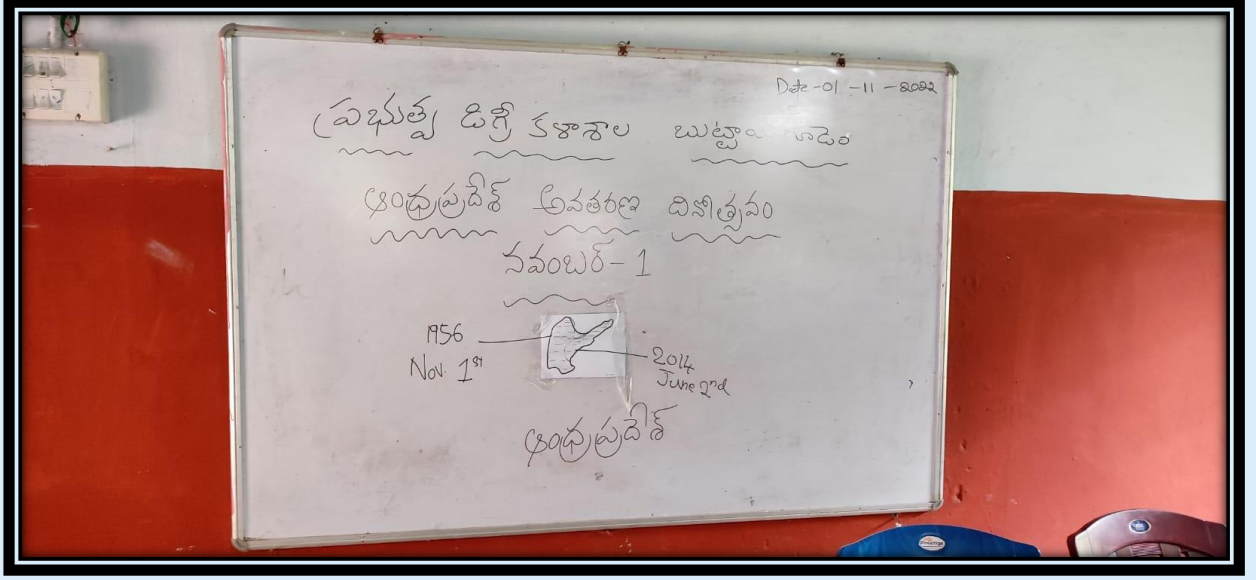 Date-01-11-2022
ప్రభుత్వ డిగ్రీ కళాశాల
ఆంధ్రప్రదేశ్ అవతరణ దినోత్సవం
నవంబర్-1
1956
Nov. 1st
2014
June 2nd
ఆంధ్రప్రదేశ్